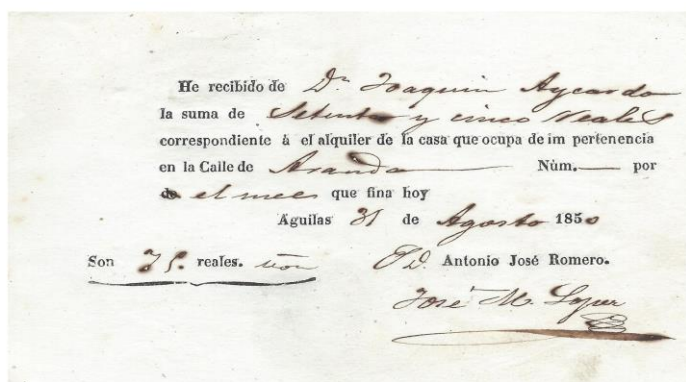 He recibido de Dn Joaquin Aycardo
la suma de Setenta y cinco reales
correspondiente á el alquiler de la casa que ocupa de im pertenencia
en la Calle de Aranda Núm. — por
de el mes que fina hoy
Aguilas 31 de Agosto 1850
Son 75. reales. vón
P.D. Antonio José Romero.
José M. Lopez